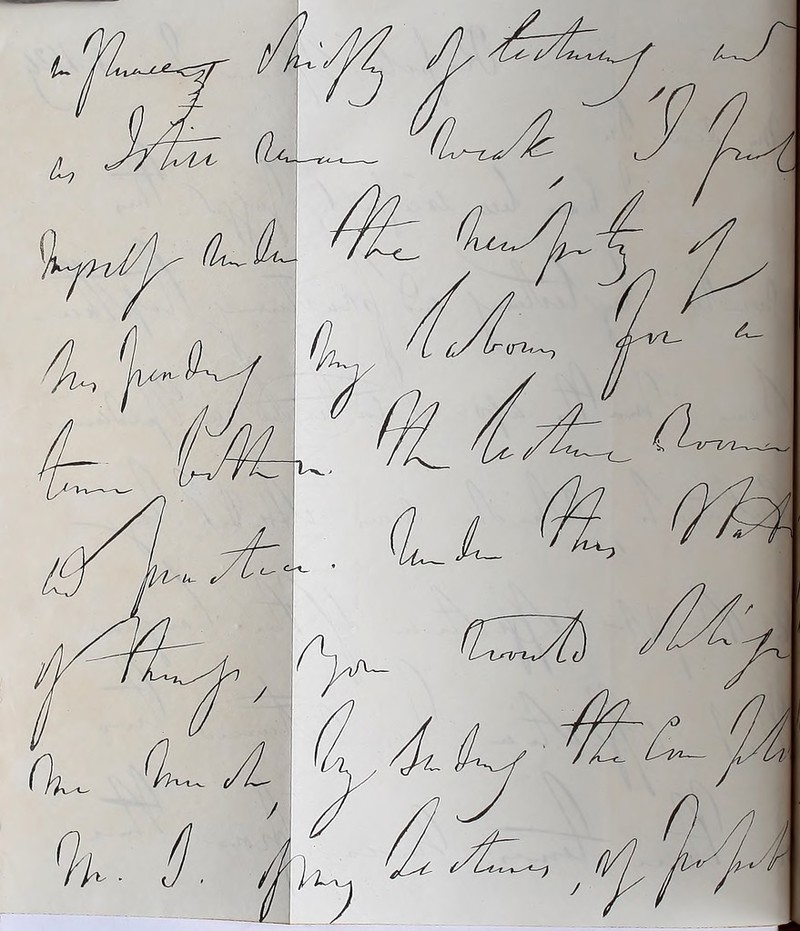 in consequence chiefly of lecturing, and
as I still remain weak, I feel
myself under the necessity of
suspending my labours for a
time both in the lecture Room
and practice. Under this State
of things, you would oblige
me much, by sending the Comple
M. S. of my Lectures, if possib